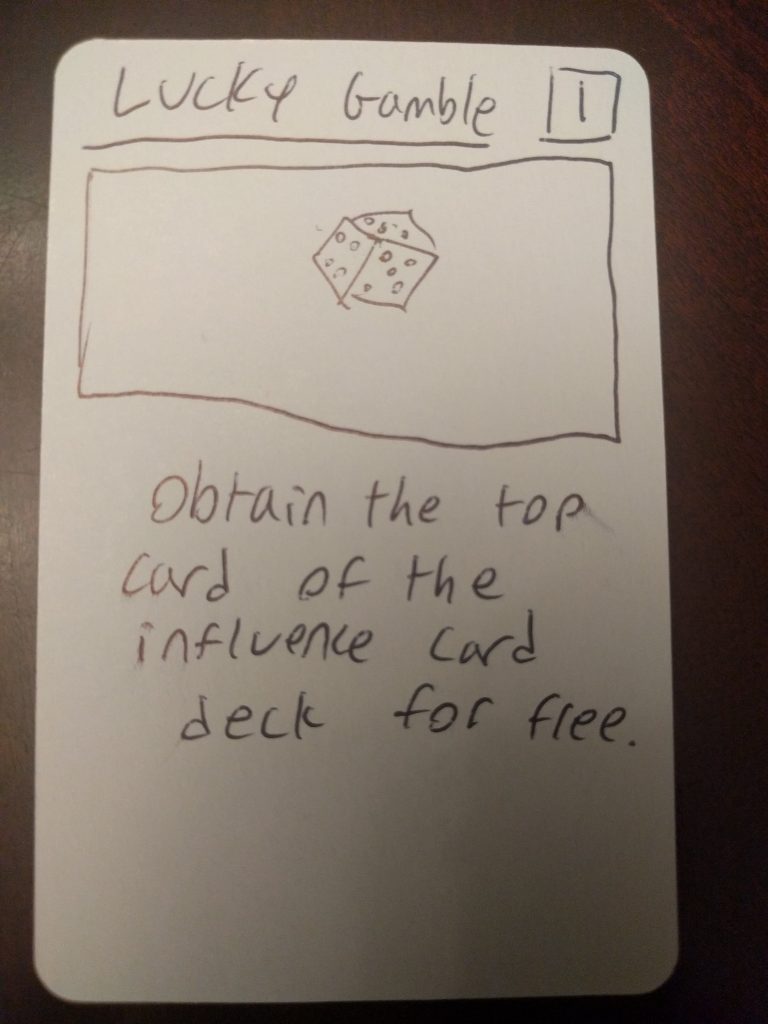 Lucky Gamble 1
Obtain the top
card of the
influence card
deck for free.